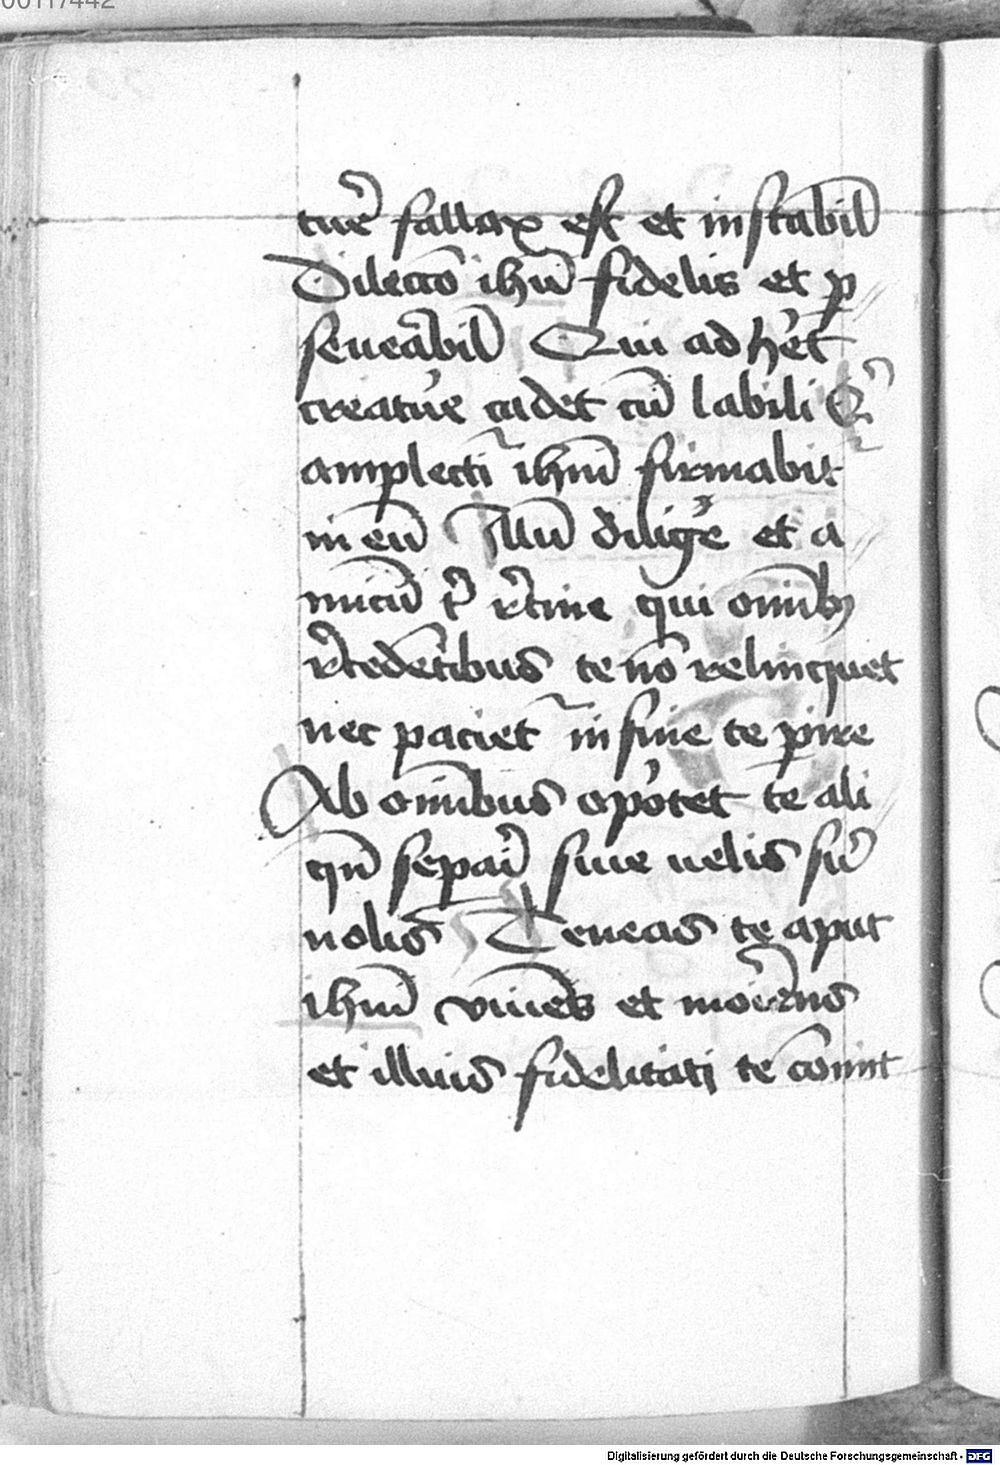 00117442
tur̃e fallax est et instabil̃
Dilectio ihũ fidelis et ꝑ
seuerabil̃ Qui adher̃et
creatur̃e cadet cũ labili Qͥ
amplectit̃ ihm̃ firmabit̃
in eũ Illũ dilige et a
micũ tͥ retine qui om̃ibꝫ
recedẽtibus te nõ relinquet
nec paciet̃ in fine te ꝑire
Ab om̃ibus oportet te ali
qñ separi siue uelis siu̾
nolis Teneas te aput
ihm̃ viuẽs et moriens
et illius fidelitati te cõmit
Digitalisierung gefördert durch die Deutsche Forschungsgemeinschaft - DFG